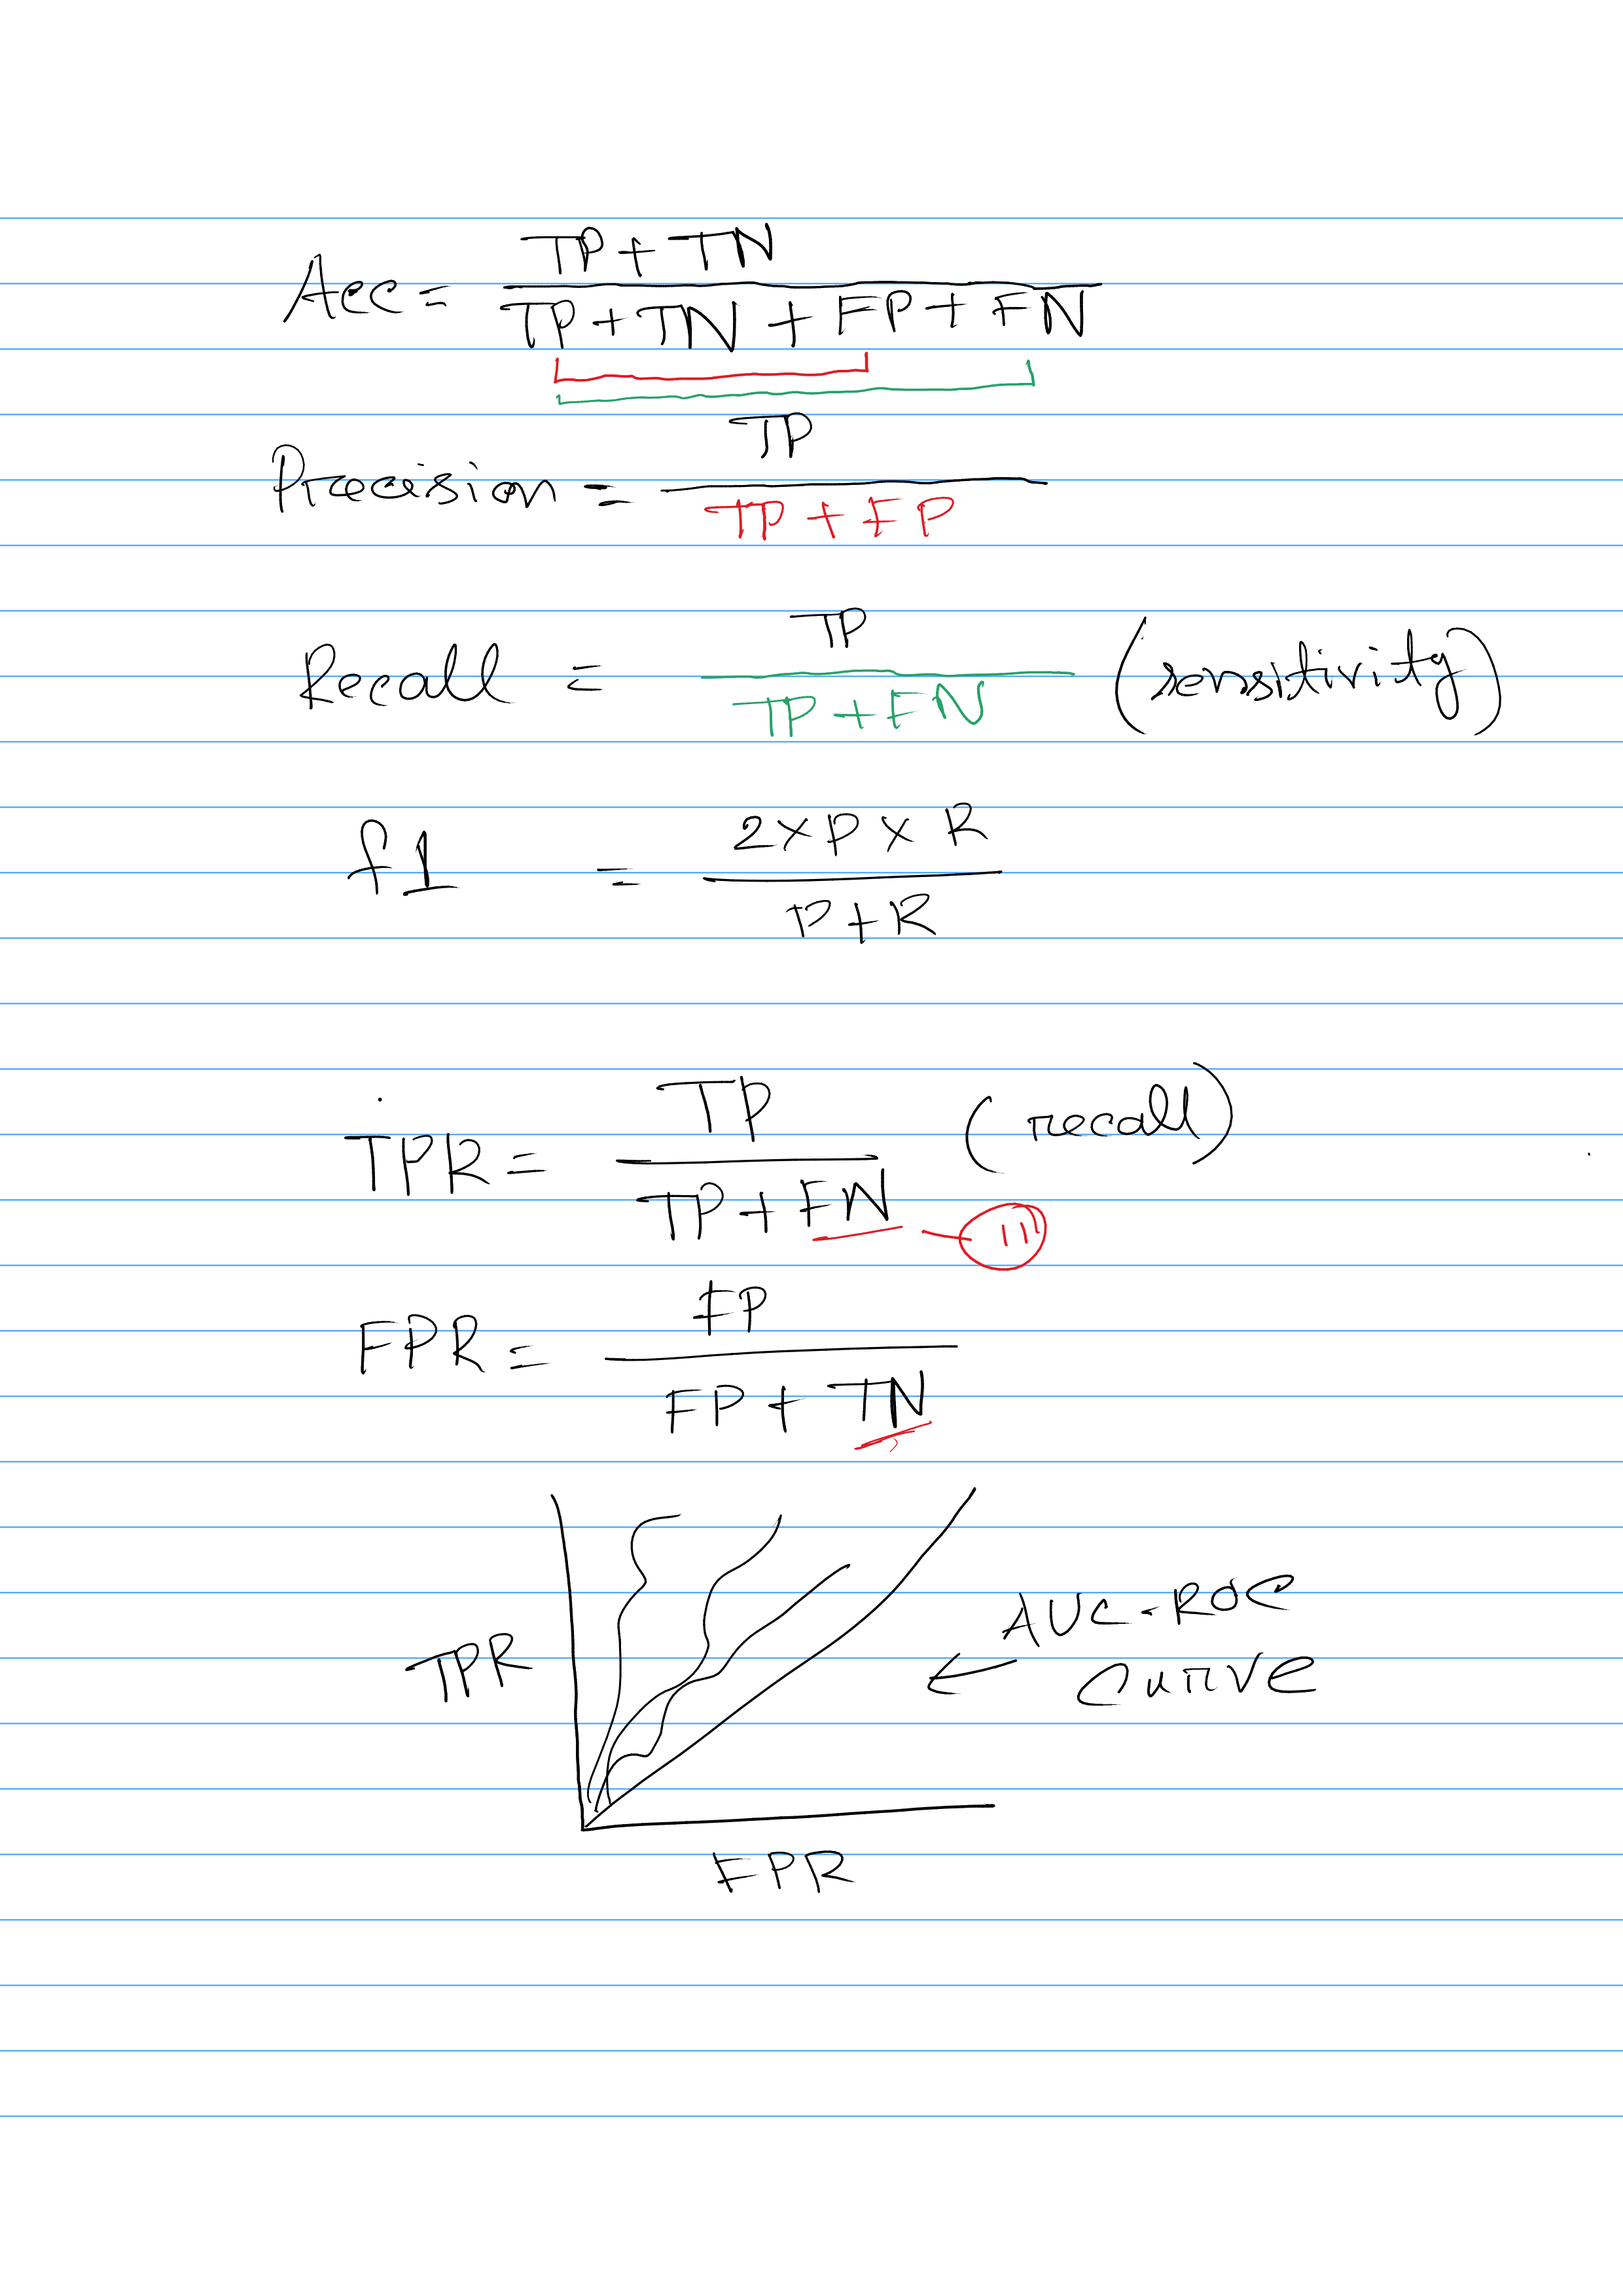 Acc = TP + TN / TP + TN + FP + FN
Precision = TP / TP + FP
Recall = TP / TP + FN (sensitivity)
f1 = 2 × P × R / P + R
TPR = TP / TP + FN (recall)
FPR = FP / FP + TN
TPR
AUC-ROC
curve
FPR